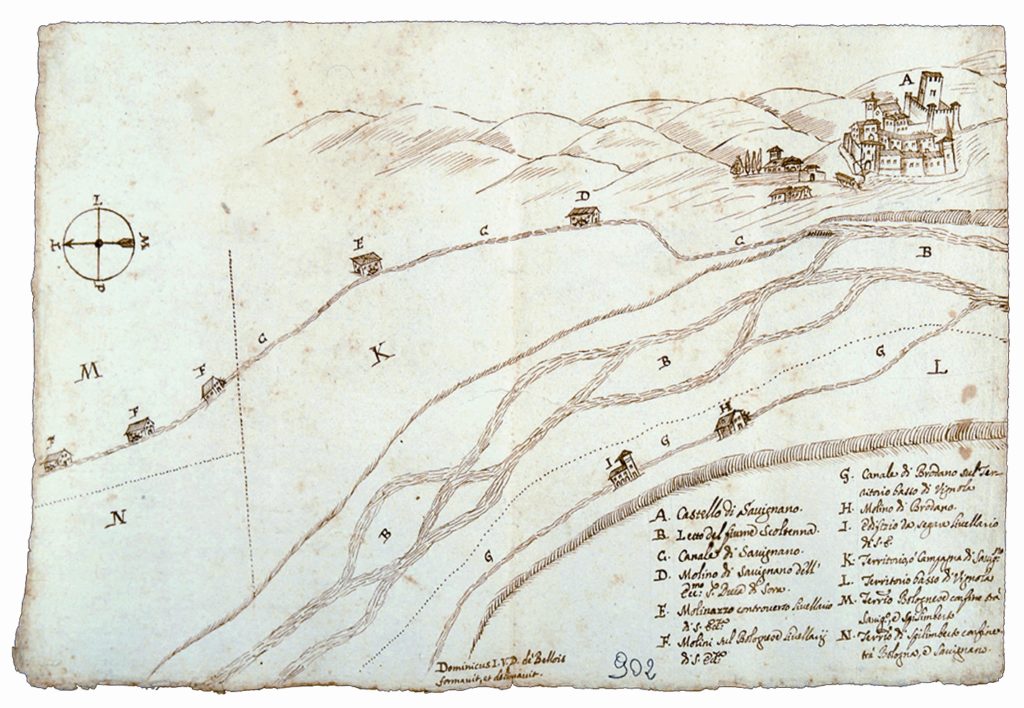 A
D
E
C
C
B
L
T
M
P
G
K
B
C
L
M
F
H
F
G
F
I
N
B
G
A. Castello di Savignano.
B. Letto del fiume Scoltenna.
C. Canale di Savignano.
D. Molino di Savignano dell'
di Sora
E. Molinazzo controverso livellario
di S. Ecc.
F. Molini sul Bolognese livellarij
di S. Ecc.
G. Canale di Brodano sul
ritorio basso di Vignola
H. Molino di Brodano.
I. Edifizio da segare livellario
di S. E.
K. Territorio, o Campagna di
L. Territorio basso di Vignola
M. Bolognese confine trà
e Spilimberto
N. di Spilimberto confine
trà Bologna, e Savignano.
Dominicus I.V.D. de Bellois
formavit, et delineavit.
902